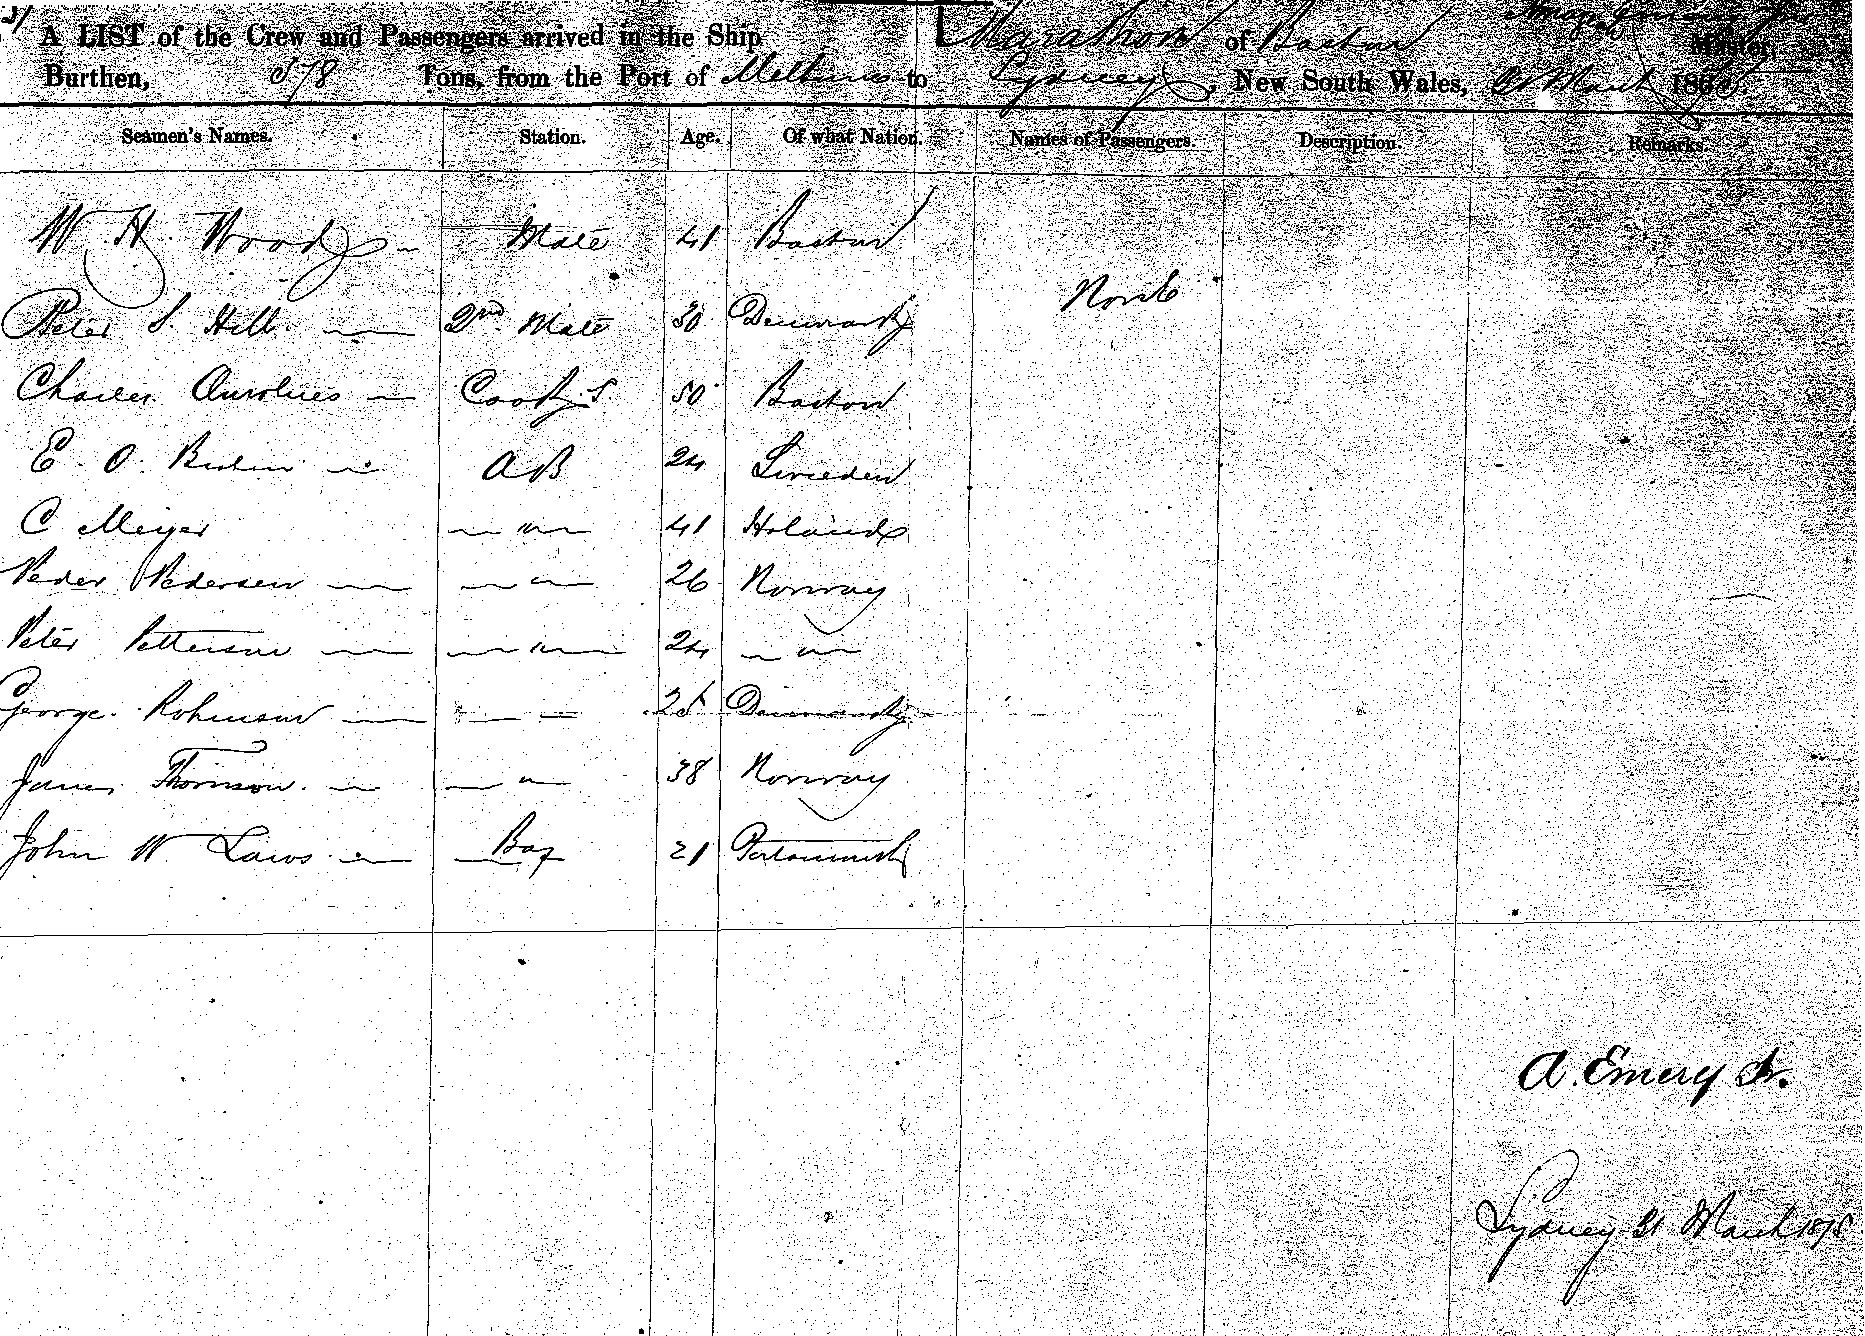 A LIST of the Crew and Passengers arrived in the Ship Marathon of Boston Master,
Burthen, 578 Tons, from the Port of to Sydney, New South Wales, 31 March 187
Seamen's Names. Station. Age. Of what Nation. Names of Passengers. Description. Remarks.
W. H. Wood Mate 41 Boston
None
Peter S. Hill 2nd Mate 30 Denmark
Charles Cook & S 50 Boston
E. O. AB 24 Sweeden
C Meyer " 41 Holand
Peder Pedersen " 26 Norway
Peter Petterson " 24 "
George Robinson 25 Denmark
James Thomson " 38 Norway
John W Laws Boy 21 Portsmouth
A. Emery Jr.
Sydney 31 March 1875